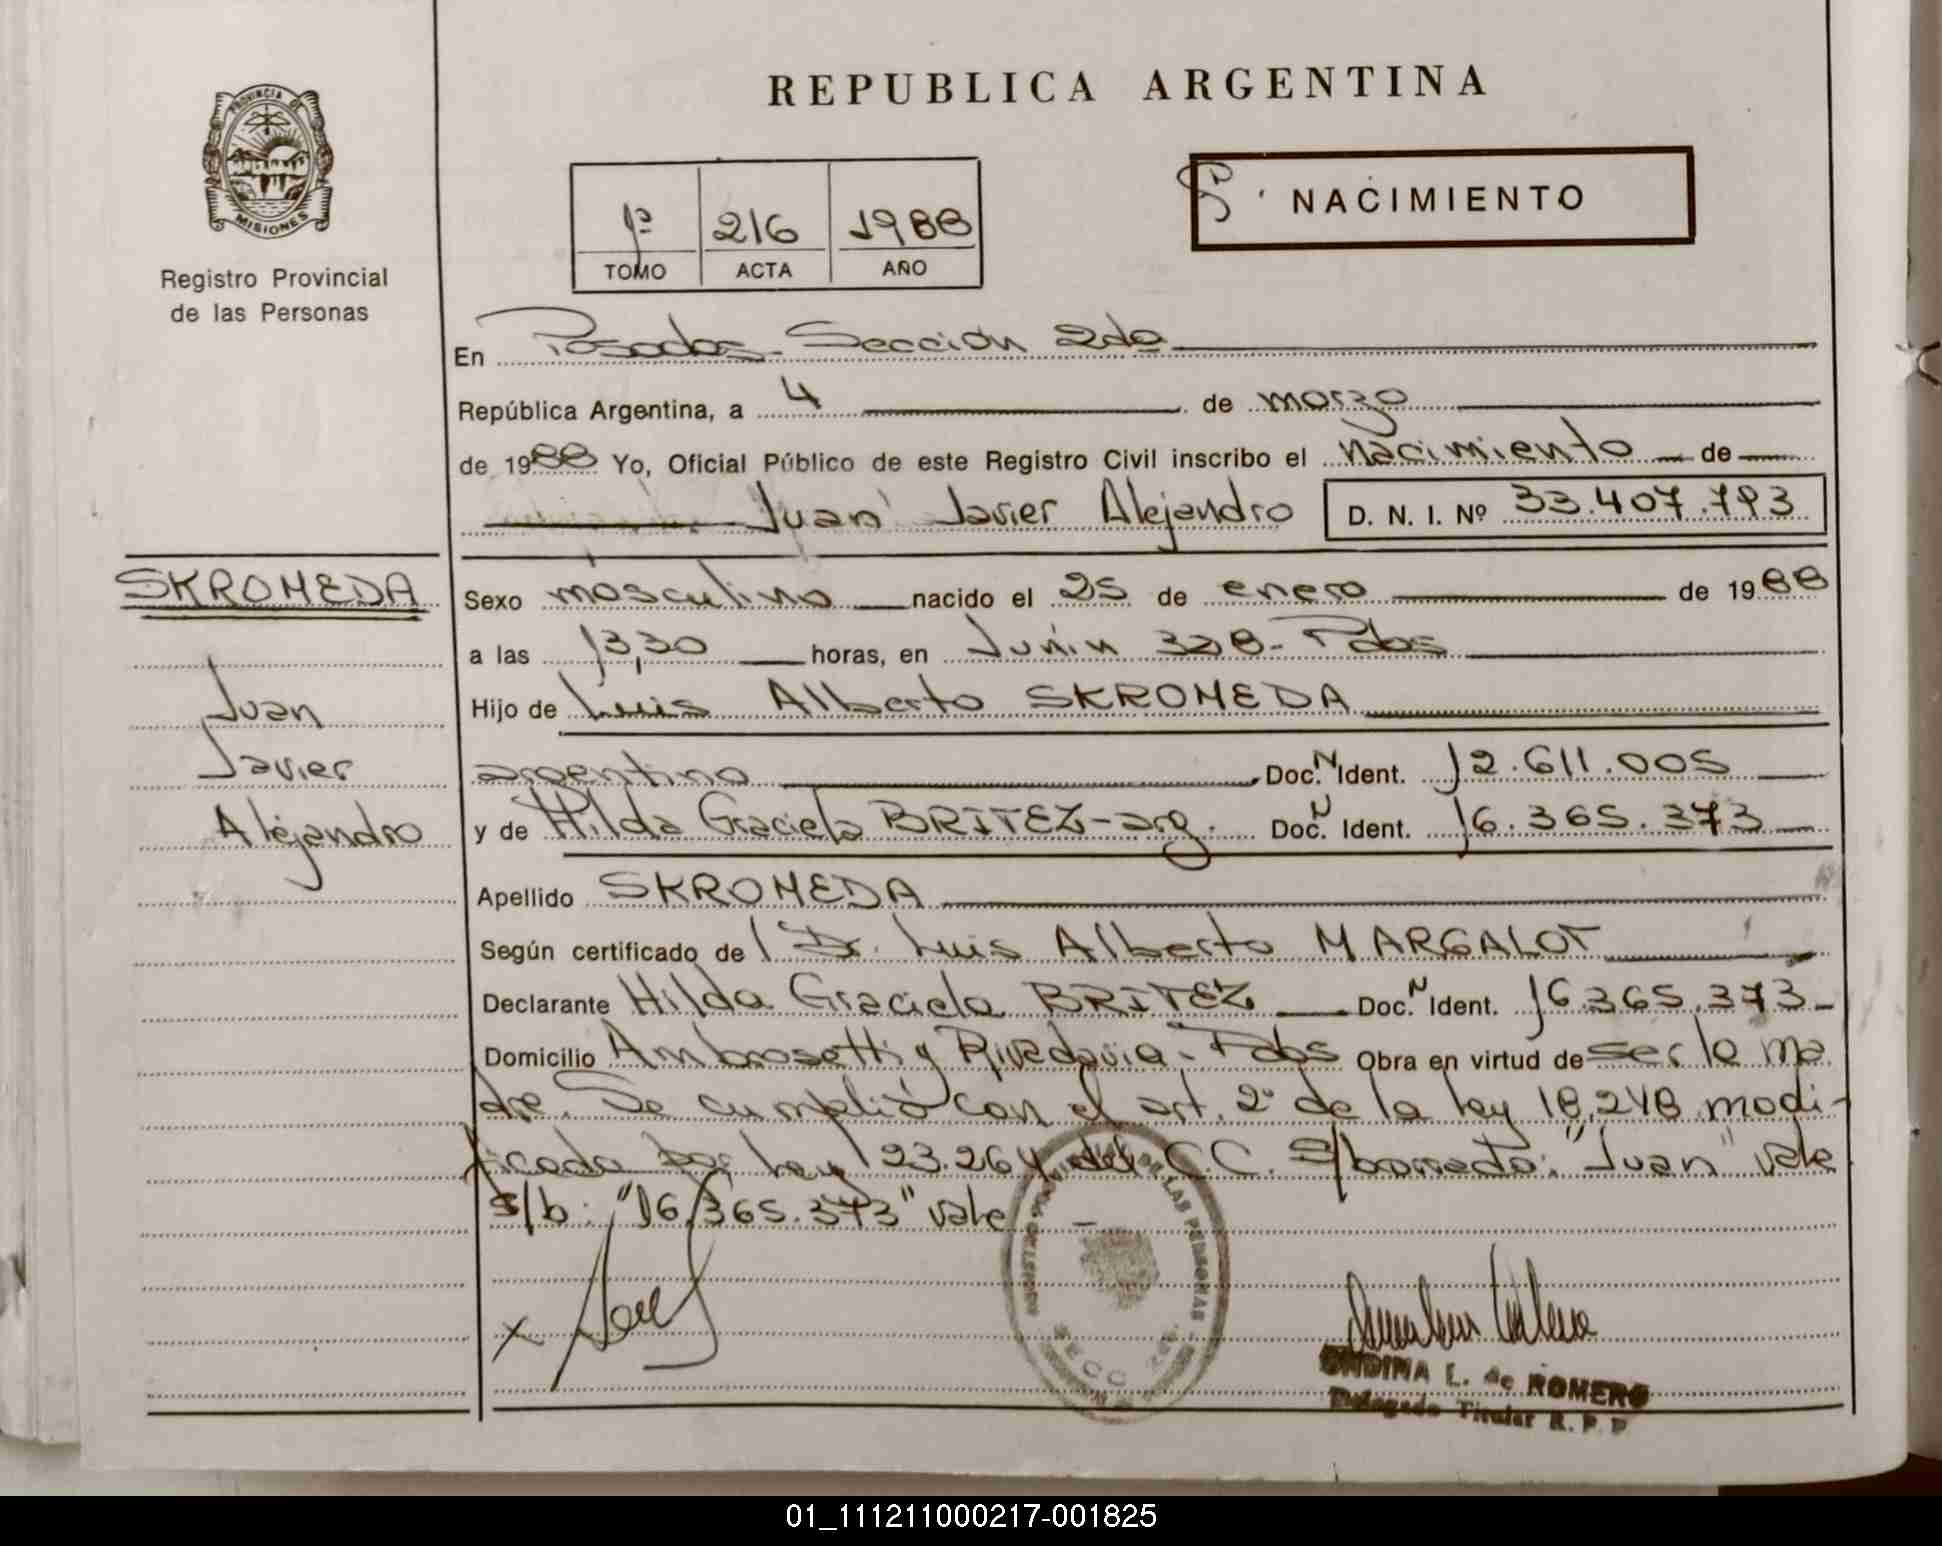 REPUBLICA ARGENTINA
PROVINCIA DE
MISIONES
Registro Provincial
de las Personas
1º 216 1988
TOMO ACTA AÑO
NACIMIENTO
En Posadas - Sección 2da
República Argentina, a 4 de marzo
de 1988 Yo, Oficial Público de este Registro Civil inscribo el nacimiento de
Juan Javier Alejandro D. N. I. Nº 33.407.793
SKROMEDA
Juan
Javier
Alejandro
Sexo masculino nacido el 25 de enero de 1988
a las 13,30 horas, en Junín 328 - Pdas
Hijo de Luis Alberto SKROMEDA
argentino Doc. N Ident. 12.611.005
y de Hilda Graciela BRITEZ - arg. Doc. N Ident. 16.365.373
Apellido SKROMEDA
Según certificado de l Dr. Luis Alberto MARGALOT
Declarante Hilda Graciela BRITEZ Doc. N Ident. 16.365.373
Domicilio Ambrosetti y Rivadavia - Pdas Obra en virtud de ser la ma
dre. Se cumplió con el art. 2º de la ley 18.248 modi-
ficada por ley 23.264 del C.C. s/borrado: "Juan" vale
s/b: "16.365.373" vale
LAS PERSONAS
SECC
ONDINA L. de ROMERO
Delegada Titular R. P. P
01_111211000217-001825